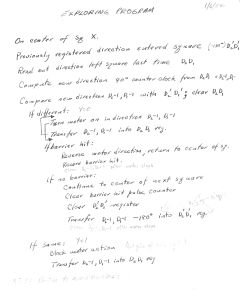 EXPLORING PROGRAM
On center of sq X.
Previously registered direction entered square D₁'D₀'
Read out direction left square last time D₁D₀
Compute new direction 90° counter clock from D₁D₀
Compare new direction D₁-1, D₀-1 with D₁'D₀'; clear D₁D₀
If different: Yes
Turn motor on in direction D₁-1, D₀-1
Transfer D₁-1, D₀-1 into D₁D₀ reg.
If barrier hit:
Reverse motor direction, return to center of sq.
Reverse barrier hit.
If no barrier:
Continue to center of next square
Clear barrier hit pulse counter
Clear D₁'D₀' register
Transfer D₁-1, D₀-1 -180° into D₁'D₀' reg.
If same: Yes!
Block motor action
Transfer D₁-1, D₀-1 into D₁D₀ reg